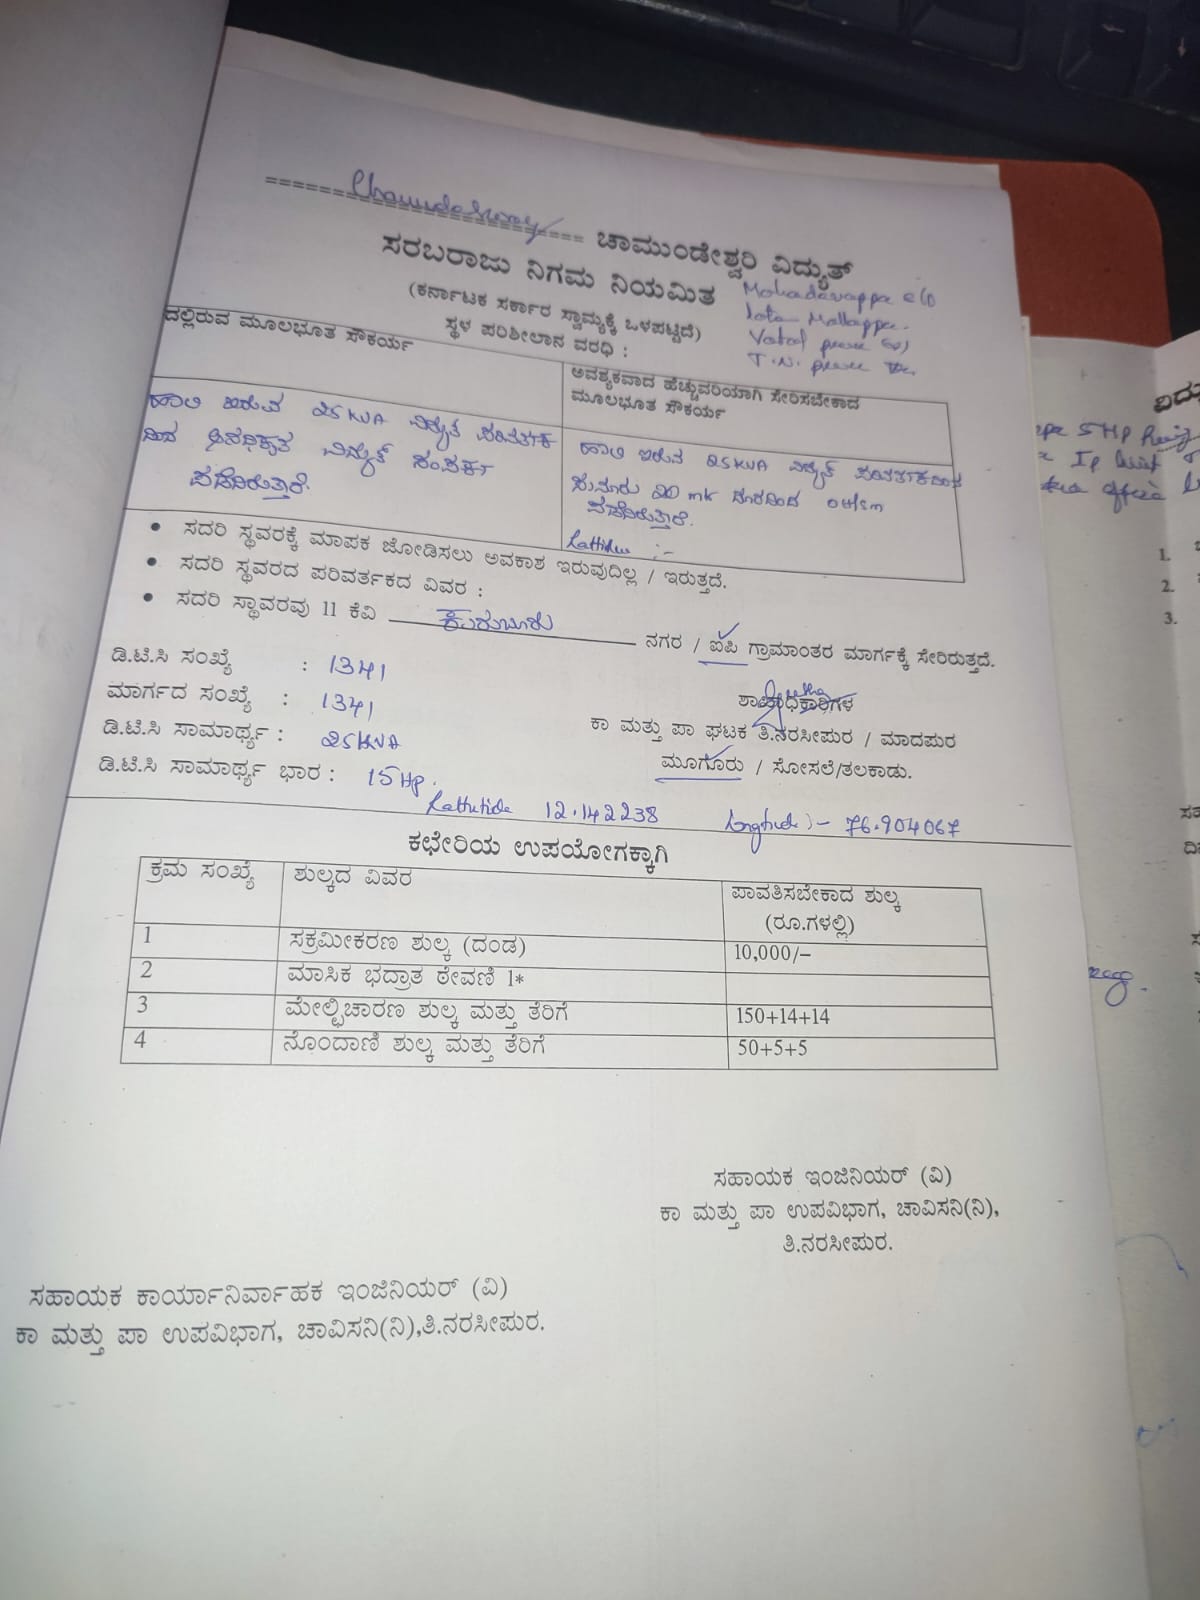 Chamundeshwary
ಚಾಮುಂಡೇಶ್ವರಿ ವಿದ್ಯುತ್
ಸರಬರಾಜು ನಿಗಮ ನಿಯಮಿತ
(ಕರ್ನಾಟಕ ಸರ್ಕಾರ ಸ್ವಾಮ್ಯಕ್ಕೆ ಒಳಪಟ್ಟಿದೆ)
ಸ್ಥಳ ಪರಿಶೀಲಾನ ವರಧಿ :
Mahadevappa c/o
late Mallappa.
ದಲ್ಲಿರುವ ಮೂಲಭೂತ ಸೌಕರ್ಯ
ಅವಶ್ಯಕವಾದ ಹೆಚ್ಚುವರಿಯಾಗಿ ಸೇರಿಸಬೇಕಾದ
ಮೂಲಭೂತ ಸೌಕರ್ಯ
ಹಾಲಿ ಇರುವ 25 KVA ವಿದ್ಯುತ್ ಪರಿವರ್ತಕ
ದಿಂದ ಅನಧಿಕೃತ ವಿದ್ಯುತ್ ಸಂಪರ್ಕ
ಪಡೆದಿರುತ್ತಾರೆ.
ಹಾಲಿ ಇರುವ 25KVA ವಿದ್ಯುತ್ ಪರಿವರ್ತಕದಿಂದ
ಸುಮಾರು 20 ದೂರದಿಂದ
ಪಡೆದಿರುತ್ತಾರೆ.
• ಸದರಿ ಸ್ಥವರಕ್ಕೆ ಮಾಪಕ ಜೋಡಿಸಲು ಅವಕಾಶ ಇರುವುದಿಲ್ಲ / ಇರುತ್ತದೆ.
• ಸದರಿ ಸ್ಥವರದ ಪರಿವರ್ತಕದ ವಿವರ :
• ಸದರಿ ಸ್ಥಾವರವು 11 ಕೆವಿ ಕುರುಬೂರು ನಗರ / ಐಪಿ ಗ್ರಾಮಾಂತರ ಮಾರ್ಗಕ್ಕೆ ಸೇರಿರುತ್ತದೆ.
ಡಿ.ಟಿ.ಸಿ ಸಂಖ್ಯೆ : 1341
ಮಾರ್ಗದ ಸಂಖ್ಯೆ : 1341
ಡಿ.ಟಿ.ಸಿ ಸಾಮಾರ್ಥ್ಯ : 25 KVA
ಡಿ.ಟಿ.ಸಿ ಸಾಮಾರ್ಥ್ಯ ಭಾರ : 15 Hp.
ಶಾಖಾಧಿಕಾರಿಗಳ
ಕಾ ಮತ್ತು ಪಾ ಘಟಕ ತಿ.ನರಸೀಪುರ / ಮಾದಪುರ
ಮೂಗೂರು / ಸೋಸಲೆ/ತಲಕಾಡು.
Lathitide 12.142238 Longtude :- 76.904067
ಕಛೇರಿಯ ಉಪಯೋಗಕ್ಕಾಗಿ
ಕ್ರಮ ಸಂಖ್ಯೆ ಶುಲ್ಕದ ವಿವರ ಪಾವತಿಸಬೇಕಾದ ಶುಲ್ಕ
(ರೂ.ಗಳಲ್ಲಿ)
1 ಸಕ್ರಮೀಕರಣ ಶುಲ್ಕ (ದಂಡ) 10,000/–
2 ಮಾಸಿಕ ಭದ್ರಾತ ಠೇವಣಿ 1*
3 ಮೇಲ್ವಿಚಾರಣ ಶುಲ್ಕ ಮತ್ತು ತೆರಿಗೆ 150+14+14
4 ನೊಂದಾಣಿ ಶುಲ್ಕ ಮತ್ತು ತೆರಿಗೆ 50+5+5
ಸಹಾಯಕ ಇಂಜಿನಿಯರ್ (ವಿ)
ಕಾ ಮತ್ತು ಪಾ ಉಪವಿಭಾಗ, ಚಾವಿಸನಿ(ನಿ),
ತಿ.ನರಸೀಪುರ.
ಸಹಾಯಕ ಕಾರ್ಯಾನಿರ್ವಾಹಕ ಇಂಜಿನಿಯರ್ (ವಿ)
ಕಾ ಮತ್ತು ಪಾ ಉಪವಿಭಾಗ, ಚಾವಿಸನಿ(ನಿ),ತಿ.ನರಸೀಪುರ.
5 Hp
1.
2.
3.